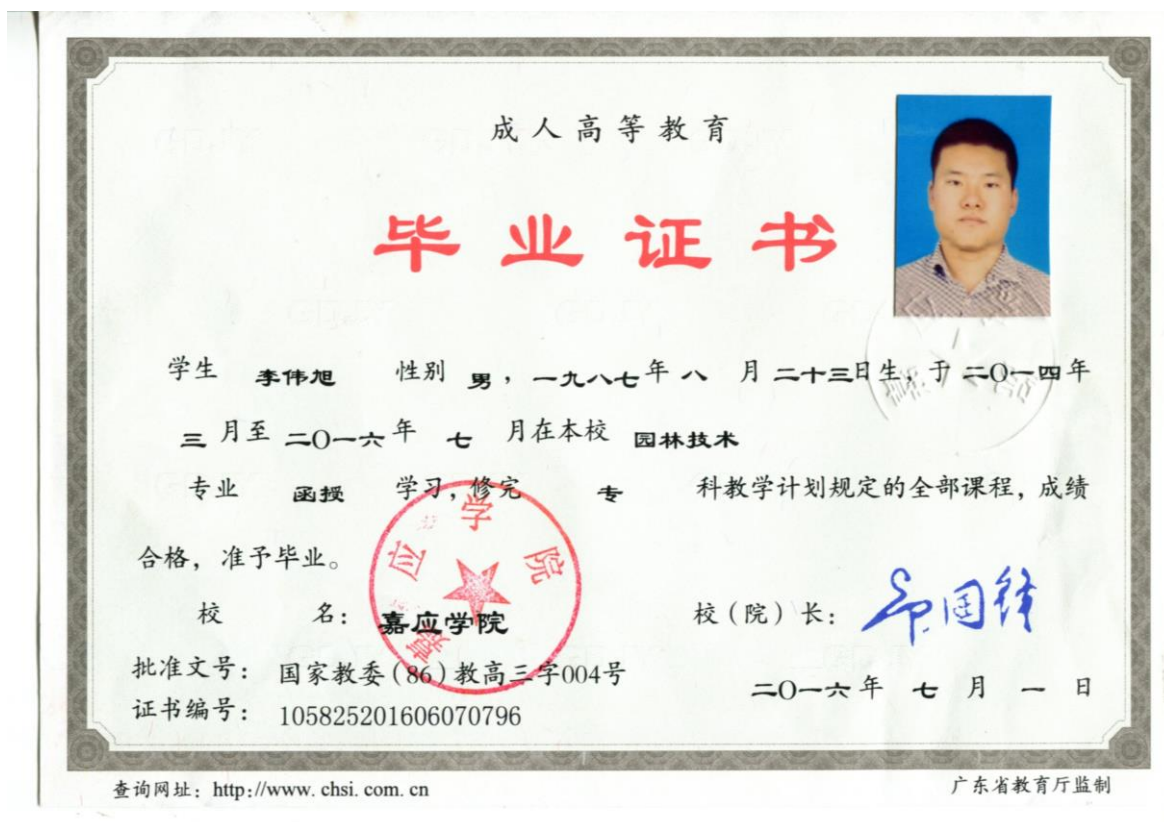 成人高等教育
毕业证书
学生 李伟旭 性别 男，一九八七年 八 月 二十三日生，于 二〇一四年
三 月至 二〇一六年 七 月在本校 园林技术
专业 函授 学习，修完 专 科教学计划规定的全部课程，成绩
合格，准予毕业。
校 名：嘉应学院
校（院）长：
批准文号：国家教委（86）教高三字004号
二〇一六年 七 月 一 日
证书编号：105825201606070796
查询网址：http://www.chsi.com.cn
广东省教育厅监制
嘉应学院